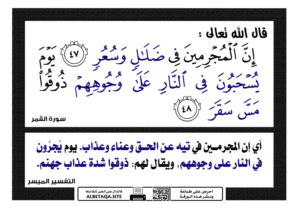 قال الله تعالى :
إِنَّ ٱلْمُجْرِمِينَ فِى ضَلَـٰلٍ وَسُعُرٍ ٤٧ يَوْمَ
يُسْحَبُونَ فِى ٱلنَّارِ عَلَىٰ وُجُوهِهِمْ ذُوقُوا۟
مَسَّ سَقَرَ ٤٨
سورة القمر
أي إن المجرمين في تيه عن الحق وعناء وعذاب. يوم يُجرُّون
في النار على وجوههم، ويقال لهم: ذوقوا شدة عذاب جهنم.
التفسير الميسر
احرص على طباعة
ونشر هذه البطاقة
ALBETAQA.SITE